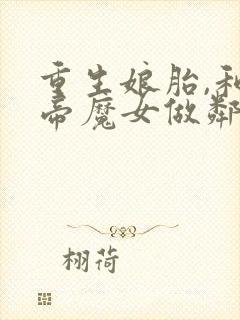 重生娘胎,和
帝魔女做鄰
栩荷